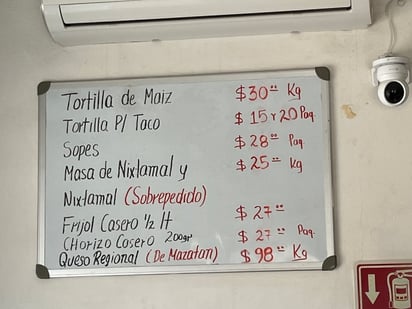 Tortilla de Maiz $30.00 Kg
Tortilla P/ Taco $15 y 20 Paq.
Sopes $28.00 Paq.
Masa de Nixtamal y $25.00 Kg
Nixtamal (Sobrepedido)
Frijol Casero 1/2 lt $27.00
Chorizo Casero 200gr $27.00 Paq.
Queso Regional (De Mazatan) $98.00 Kg